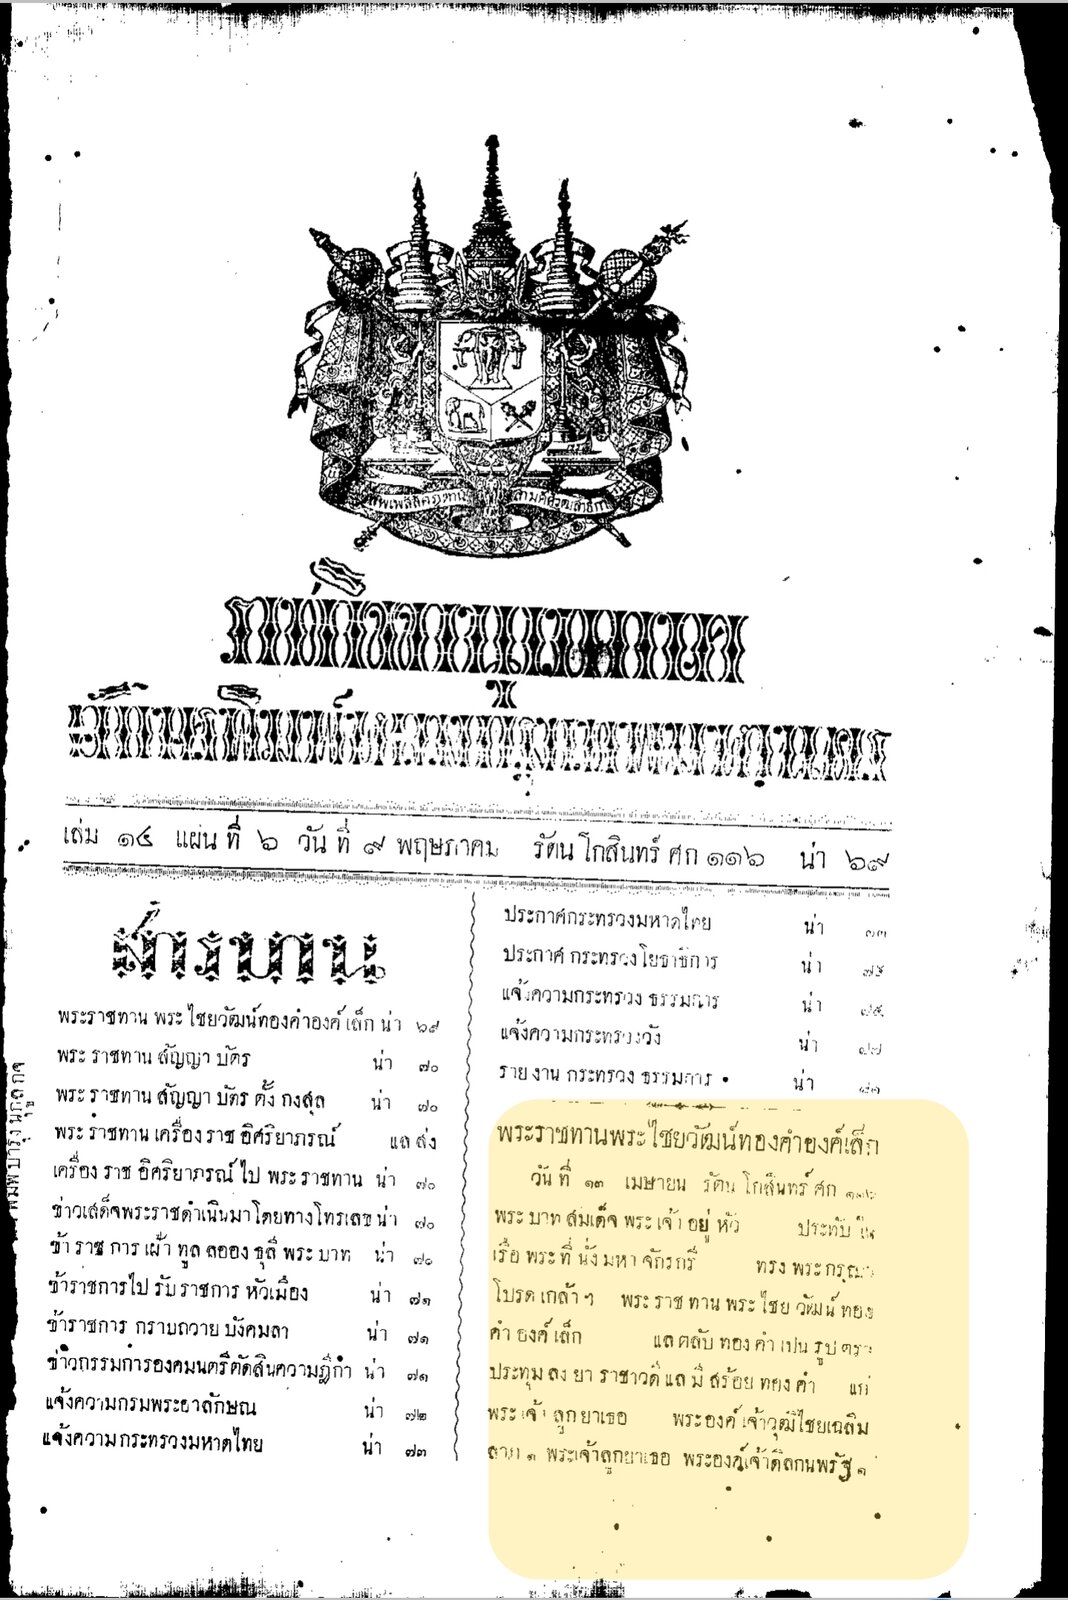 ราชกิจจานุเบกษา
เล่ม ๑๔ แผ่น ที่ ๖ วัน ที่ ๙ พฤษภาคม รัตน โกสินทร์ ศก ๑๑๖ น่า ๖๙
สารบาน
พระราชทาน พระ ไชยวัฒน์ทองคำองค์ เล็ก น่า ๖๙
พระ ราชทาน สัญญา บัตร น่า ๗๐
พระ ราชทาน สัญญา บัตร ตั้ง กงสุล น่า ๗๐
พระ ราชทาน เครื่อง ราช อิศริยาภรณ์ แล ส่ง
เครื่อง ราช อิศริยาภรณ์ ไป พระ ราชทาน น่า ๗๐
ข่าวเสด็จพระราชดำเนินมาโดยทางโทรเลข น่า ๗๐
ข้า ราช การ เฝ้า ทูล ลออง ธุลี พระ บาท น่า ๗๐
ข้าราชการไป รับ ราชการ หัวเมือง น่า ๗๑
ข้าราชการ กราบถวาย บังคมลา น่า ๗๑
ข่าวกรรมการองคมนตรีตัดสินความฎีกา น่า ๗๑
แจ้งความกรมพระอาลักษณ น่า ๗๒
แจ้งความ กระทรวงมหาดไทย น่า ๗๓
ประกาศกระทรวงมหาดไทย น่า ๗๓
ประกาศ กระทรวงโยธาธิการ น่า
แจ้งความกระทรวง ธรรมการ น่า ๗๕
แจ้งความกระทรวงวัง น่า ๗๗
ราย งาน กระทรวง ธรรมการ น่า
พระราชทานพระไชยวัฒน์ทองคำองค์เล็ก
วัน ที่ ๑๓ เมษายน รัตน โกสินทร์ ศก ๑๑๖
พระ บาท สมเด็จ พระ เจ้า อยู่ หัว ประทับ ใน
เรือ พระ ที่ นั่ง มหา จักรกรี ทรง พระ กรุณา
โปรด เกล้า ฯ พระ ราช ทาน พระ ไชย วัฒน์ ทอง
คำ องค์ เล็ก แล ตลับ ทอง คำ เปน รูป ตรา
ประทุม ลง ยา ราชาวดี แล มี สร้อย ทอง คำ แก่
พระ เจ้า ลูก ยาเธอ พระองค์ เจ้าวุฒิไชยเฉลิม
ลาภ ๑ พระเจ้าลูกยาเธอ พระองค์เจ้าดิลกนพรัฐ ๑